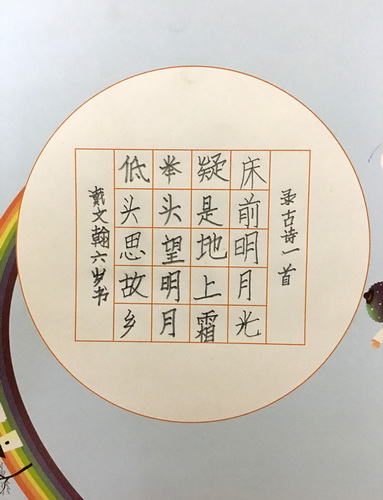 录古诗一首
床前明月光
疑是地上霜
举头望明月
低头思故乡
戴文翰六岁书